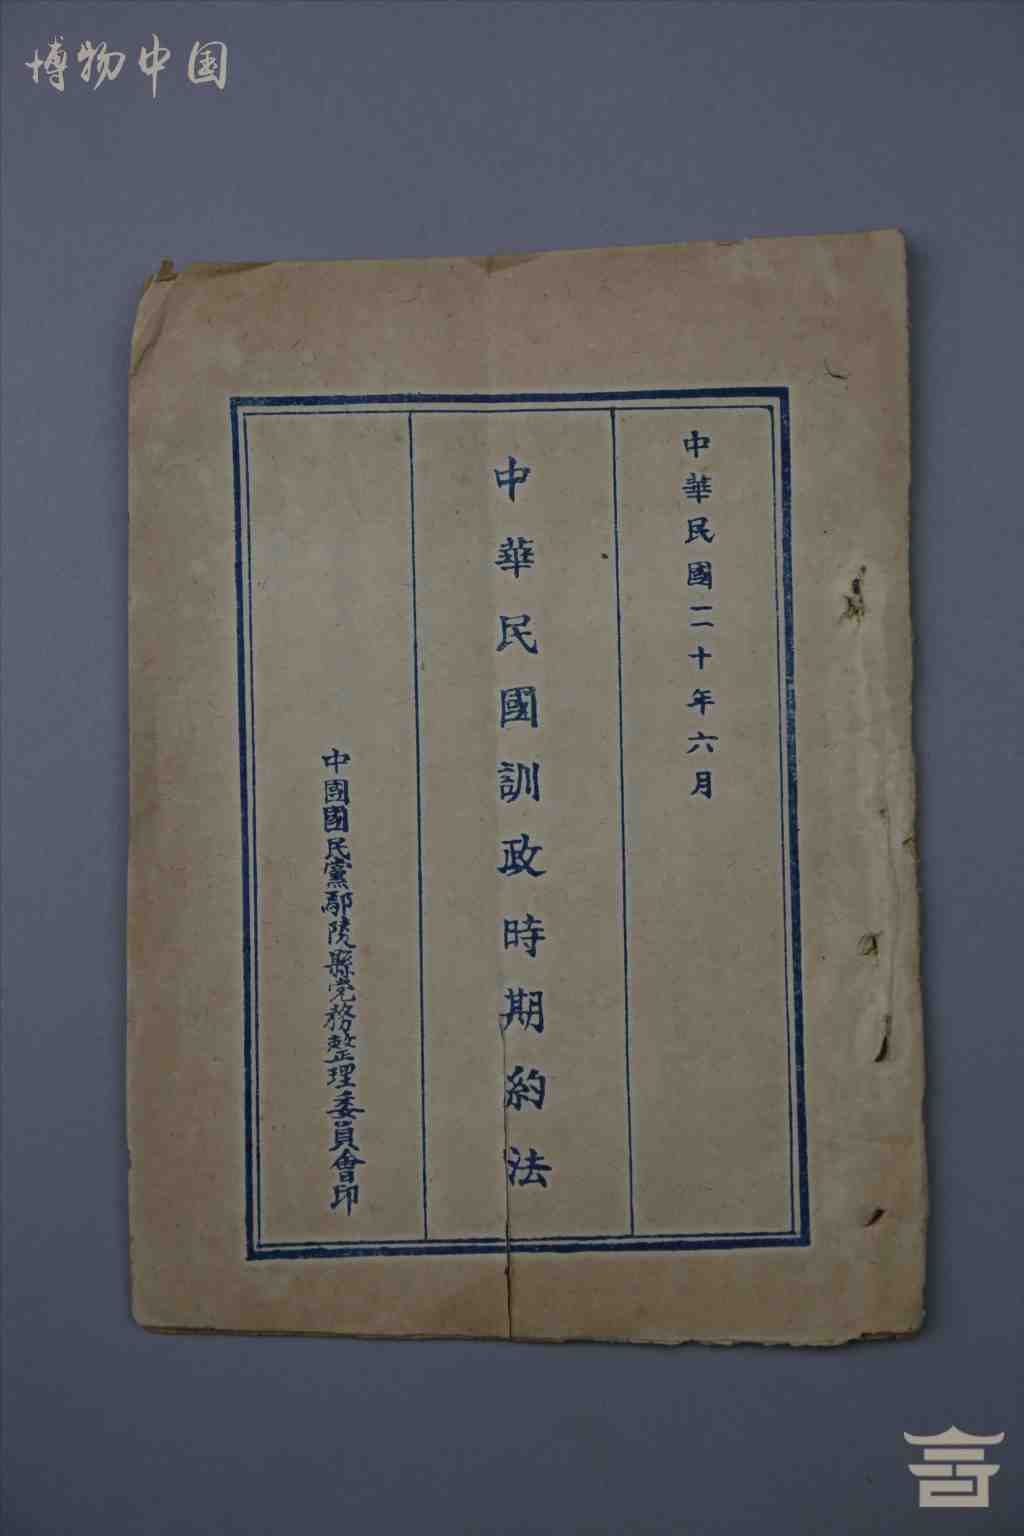 博物中国
中華民國二十年六月
中華民國訓政時期約法
中國國民黨鄢陵縣党務整理委員會印